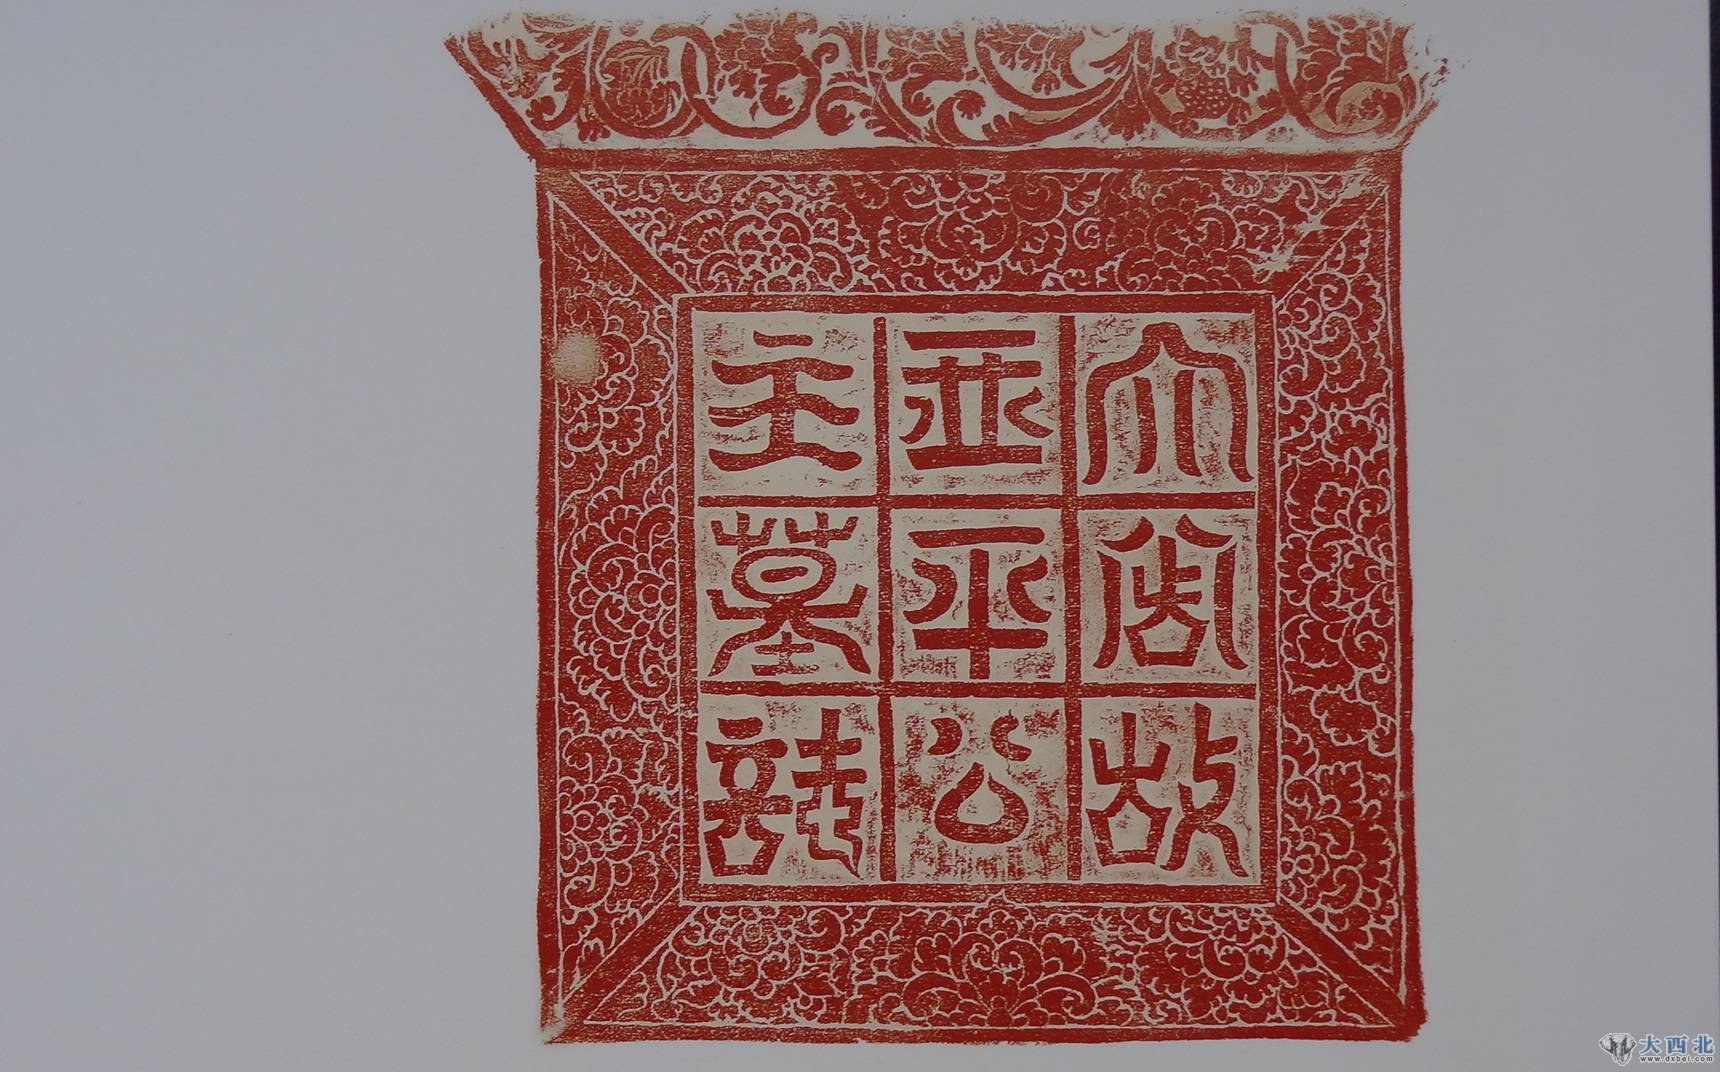 大周故
西平公
主墓誌
大西北
www.dxbei.com